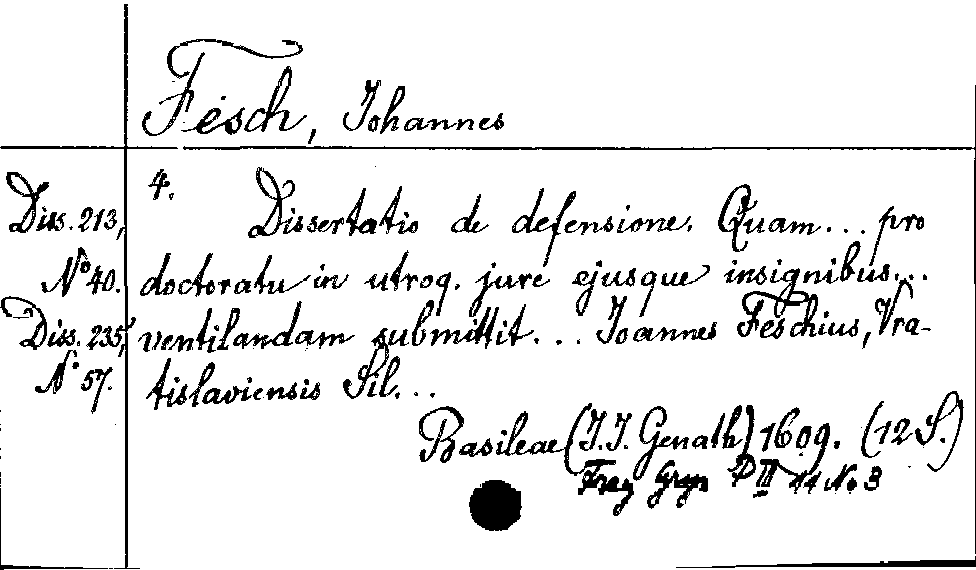 Fesch, Johannes
4.
Diss. 213,
No 40.
Diss. 235,
No 57.
Dissertatio de defensione. Quam... pro
doctoratu in utroq. jure ejusque insignibus...
ventilandam submittit... Joannes Feschius, Vra-
tislaviensis Sil...
Basileae (J. J. Genath) 1609. (12 S.)
Frey Gryn P II 11 No 3